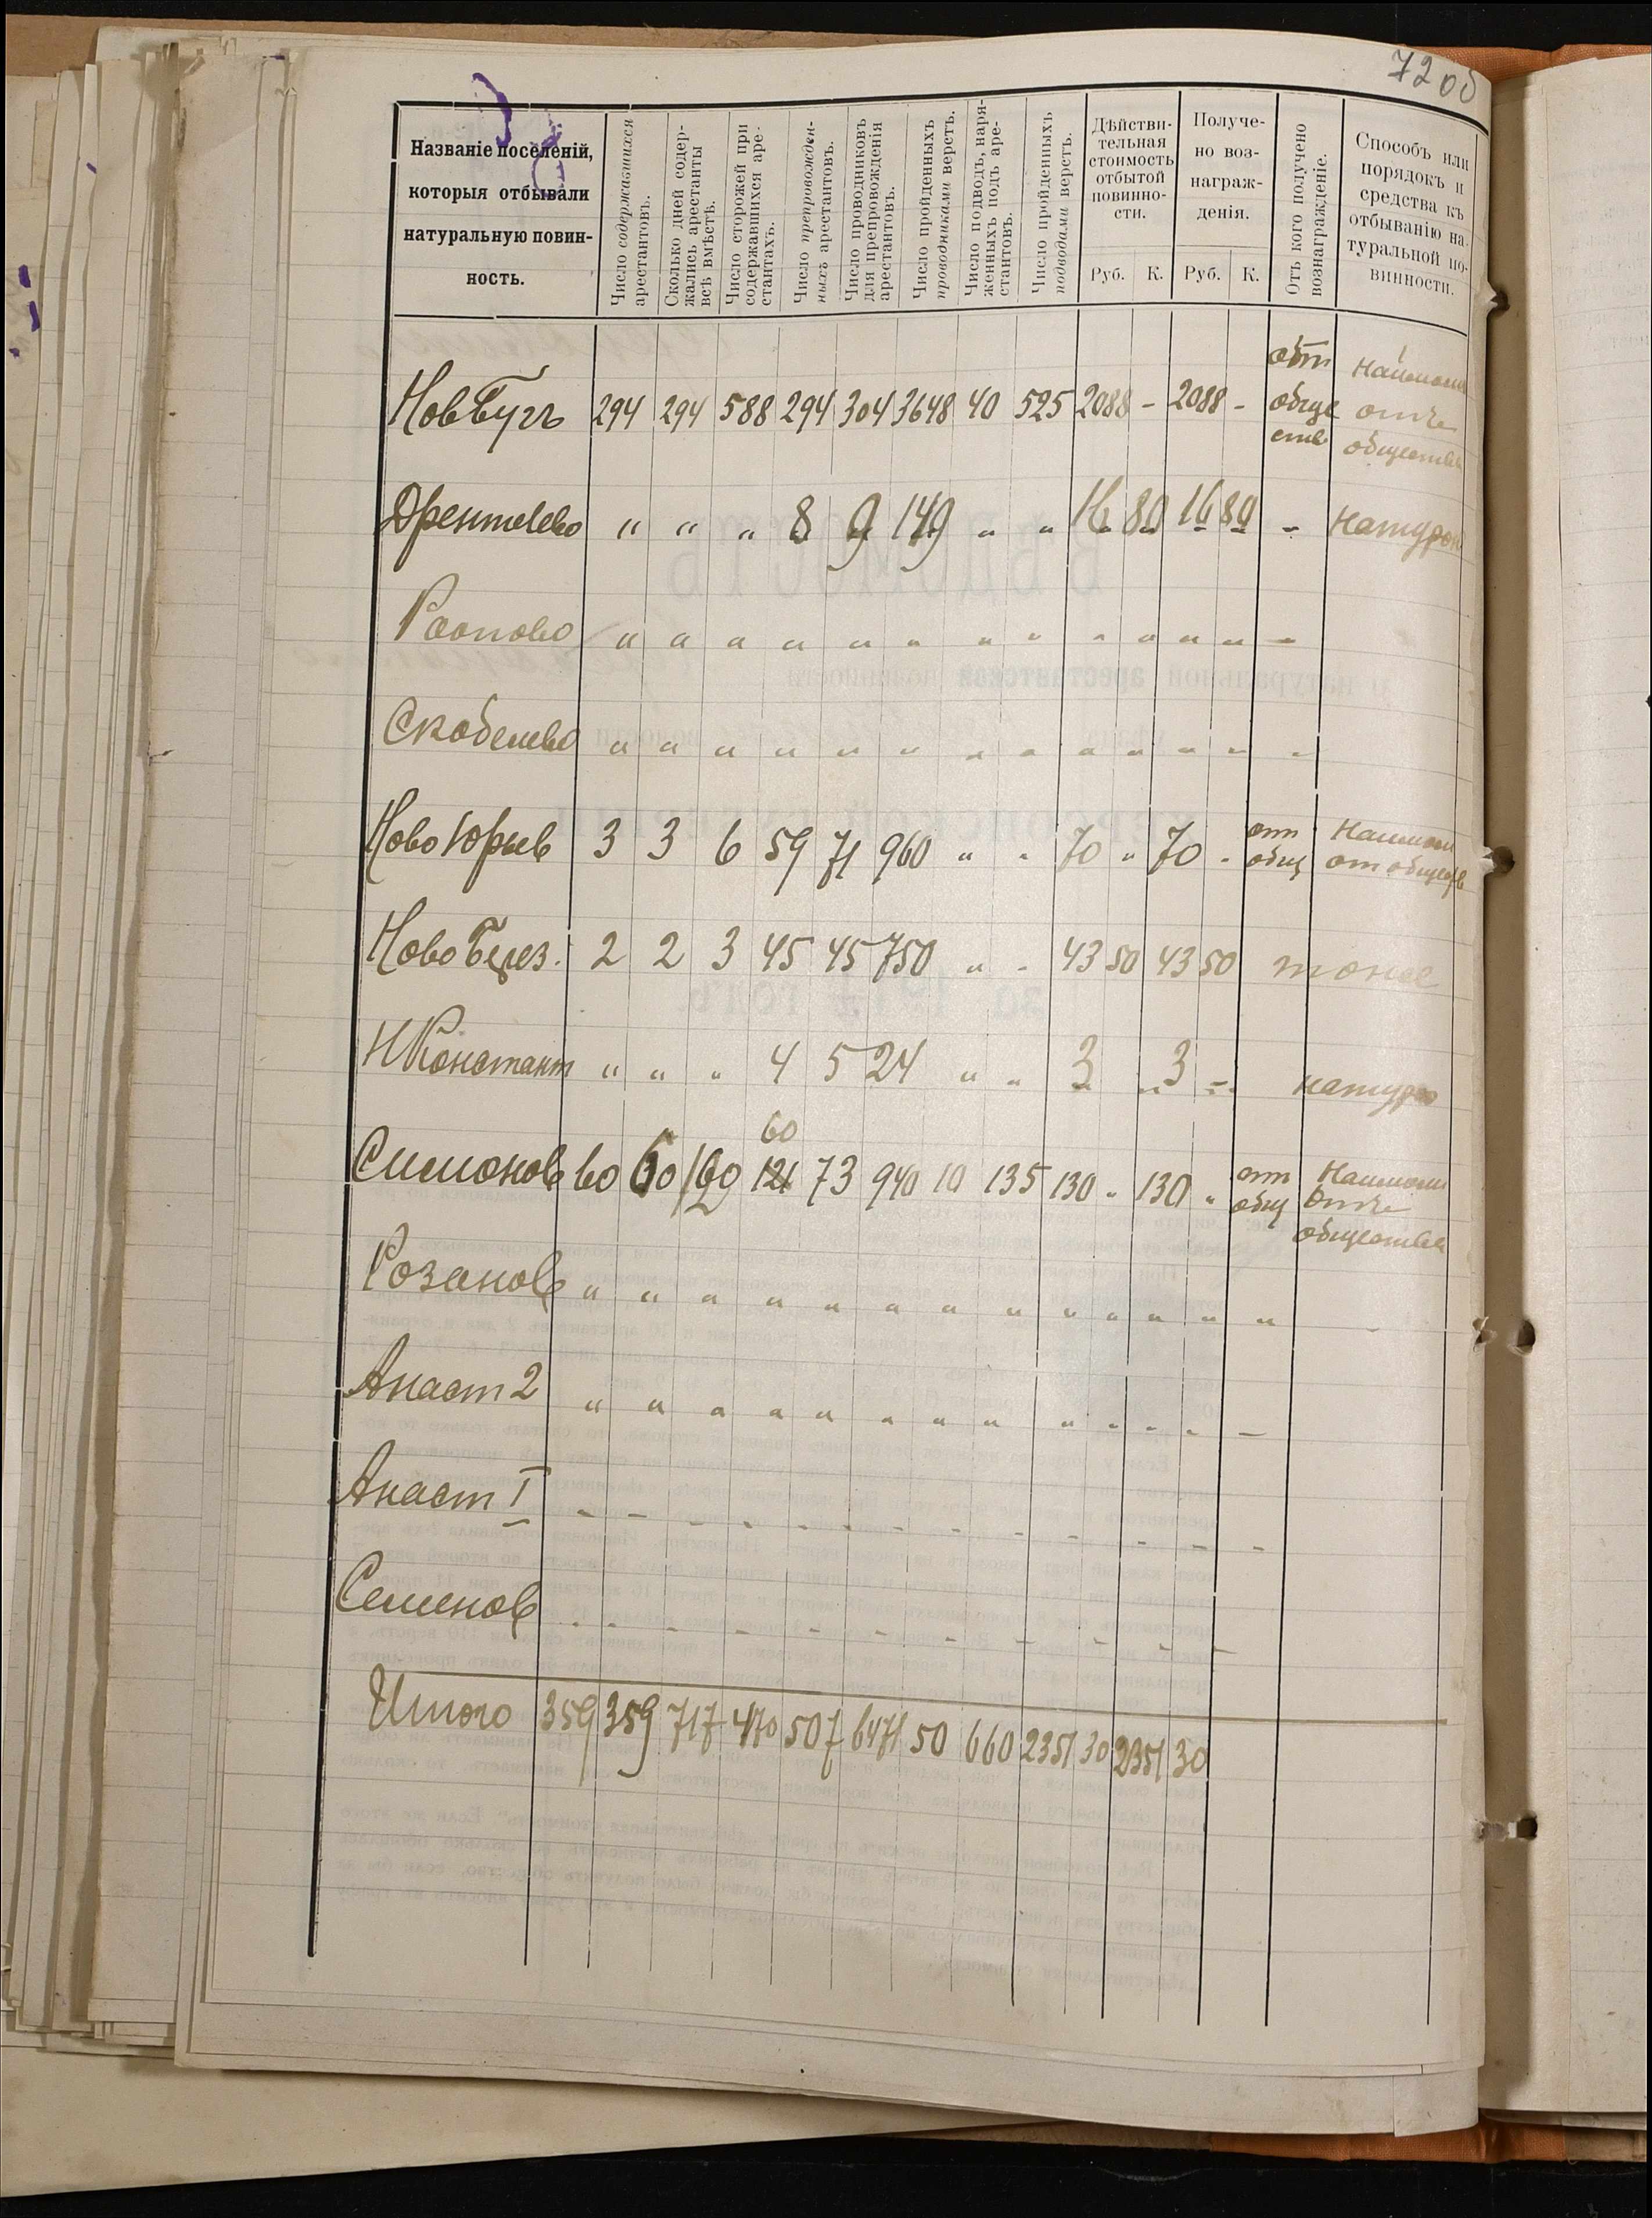 72 об
Названіе поселеній, которыя отбывали натуральную повинность.
Число содержавшихся арестантовъ.
Сколько дней содержались арестанты всѣ вмѣстѣ.
Число сторожей при содержавшихся арестантахъ.
Число препровожденныхъ арестантовъ.
Число проводниковъ для препровожденія арестантовъ.
Число пройденныхъ проводниками верстъ.
Число подводъ, наряженныхъ подъ арестантовъ.
Число пройденныхъ подводами верстъ.
Дѣйствительная стоимость отбытой повинности.
Руб. К.
Получено вознагражденія.
Руб. К.
Отъ кого получено вознагражденіе.
Способъ или порядокъ и средства къ отбыванію натуральной повинности.
НовБугъ 294 294 588 294 304 3648 40 525 2088 - 2088 - от обще ств наймом отъ
Дрентелево " " " 8 9 149 " " 16 80 16 80 - натурой
" " " " " " " " " " " " -
Скобелево " " " " " " " " " " " " -
НовоЮрьев 3 3 6 59 71 960 " " 70 " 70 - от общ Наймом от обществ
НовоБерез. 2 2 3 45 45 750 " - 43 50 43 50 тоже
НКонстант " " " 4 5 24 " " 3 .. 3 -- натурою
Симонов 60 60 120 60
121 73 940 10 135 130 - 130 " от общ Наймом отъ
Розанов " " " " " " " " " " " " "
Анаст 2 " " " " " " " " " - - - -
Анаст I - - - - - - - - - - - - -
Семенов - - - - - - - - - - -
Итого 359 359 717 470 507 6471 50 660 2351 30 2351 30